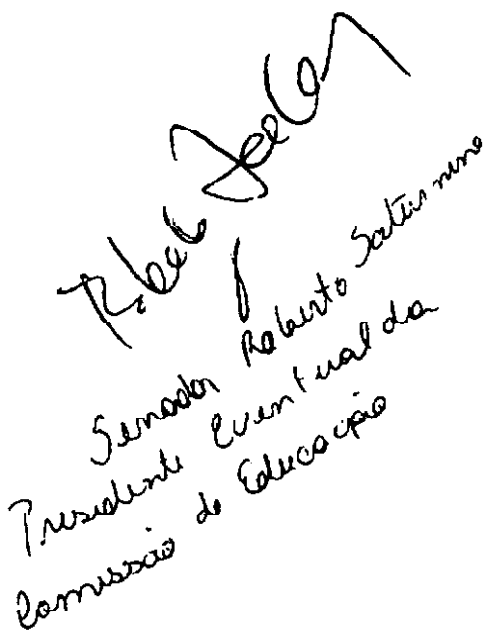 Senador Roberto Saturnino
Presidente Eventual da
Comissão de Educação